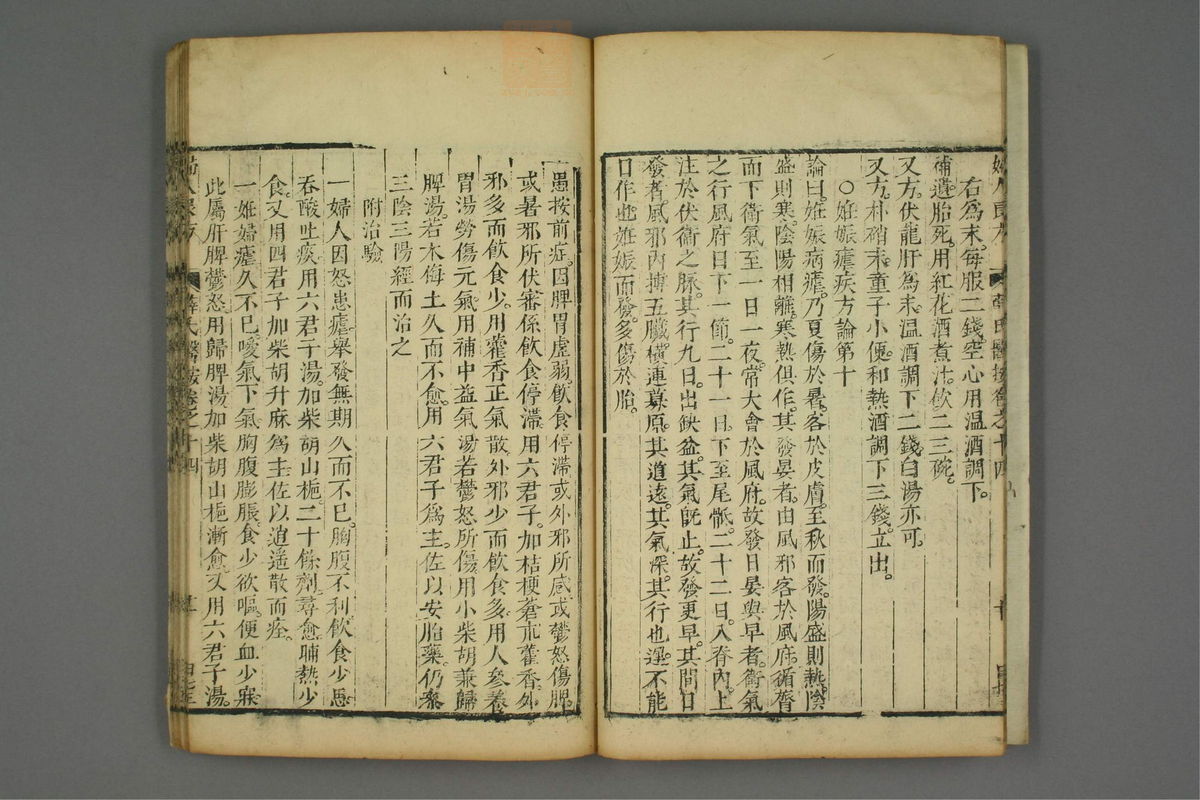 右爲末每服二錢空心用温酒調下。
補遺胎死用紅花酒煮汁飲二三碗。
又方伏龍肝爲末温酒調下二錢白湯亦可。
又方朴硝末童子小便和熱酒調下三錢立出。
○姙娠瘧疾方論第十
論曰姙娠病瘧乃夏傷於暑客於皮膚至秋而發陽盛則熱陰
盛則寒陰陽相離寒熱俱作其發晏者由風邪客於風府循膂
而下衛氣至一日一夜常大會於風府故發日晏與早者衛氣
之行風府日下一節二十一日下至尾骶二十二日入脊內上
注於伏衝之脉其行九日出鈌盆其氣旣止故發更早其間日
發者風邪內摶五臟橫連募原其道遠其氣深其行也遲不能
日作也姙娠而發多傷於胎。
愚按前症因脾胃虛弱飲食停滯或外邪所感或鬱怒傷脾
或暑邪所伏審係飲食停滯用六君子加桔梗蒼朮藿香外
邪多而飲食少用藿香正氣散外邪少而飲食多用人參養
胃湯勞傷元氣用補中益氣湯若鬱怒所傷用小柴胡兼歸
脾湯若木侮土久而不愈用六君子爲主佐以安胎藥仍參
三陰三陽經而治之
附治驗
一婦人因怒患瘧舉發無期久而不已胸腹不利飲食少思
吞酸吐痰用六君子湯加柴胡山梔二十餘劑尋愈晡熱少
食又用四君子加柴胡升麻爲主佐以逍遥散而痊。
一姙婦瘧久不已噯氣下氣胸腹膨脹食少欲嘔便血少寐
此屬肝脾鬱怒用歸脾湯加柴胡山梔漸愈又用六君子湯。
薛氏醫按卷之十四